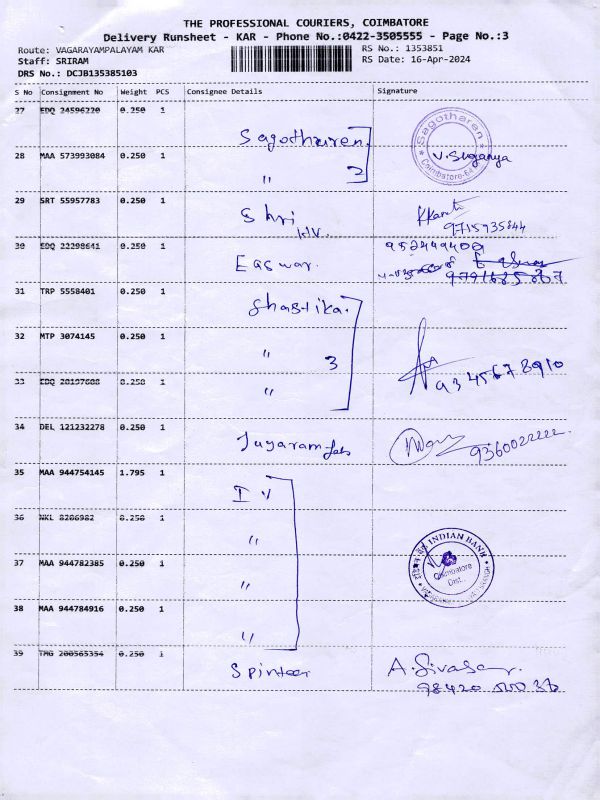 THE PROFESSIONAL COURIERS, COIMBATORE
Delivery Runsheet - KAR - Phone No.:0422-3505555 - Page No.:3
Route: VAGARAYAMPALAYAM KAR
RS No.: 1353851
Staff: SRIRAM
RS Date: 16-Apr-2024
DRS No.: DCJB135385103
S No Consignment No Weight PCS Consignee Details Signature
27 EDQ 24596220 0.250 1
Sagotharen
Sagotharen
Coimbatore-64
V. Suganya
28 MAA 573993084 0.250 1
" 2
29 SRT 55957783 0.250 1
Shri
9715935844
30 EDQ 22298641 0.250 1
Easwar.
9791685867
31 TRP 5558401 0.250 1
Shastika.
32 MTP 3074145 0.250 1
" 3
9345678910
33 EDQ 20197688 0.250 1
"
34 DEL 121232278 0.250 1
Jayaram
9360022222.
35 MAA 944754145 1.795 1
I
36 NKL 8206982 0.250 1
"
INDIAN BANK
Coimbatore
Dist.
37 MAA 944782385 0.250 1
"
38 MAA 944784916 0.250 1
"
39 TMG 200565354 0.250 1
A. Sivasa
98420